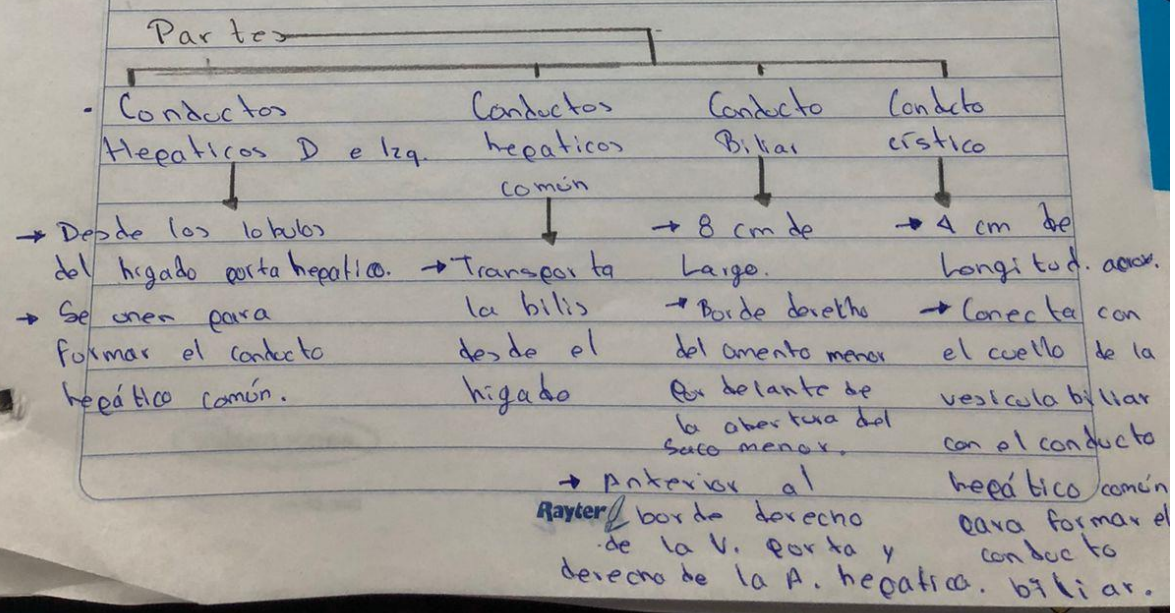 Partes
· Conductos
Hepaticos D e Izq.
→ Desde los lobulos
del higado porta hepatico.
→ Se unen para
formar el conducto
hepático común.
Conductos
hepaticos
común
→ Transporta
la bilis
desde el
higado
Conducto
Biliar
→ 8 cm de
Largo.
→ Borde derecho
del omento menor
por delante de
la abertura del
saco menor.
→ Anterior al
borde derecho
de la V. porta y
derecho de la A. hepatica.
Conducto
cístico
→ 4 cm de
Longitud. aprox.
→ Conecta con
el cuello de la
vesicula biliar
con el conducto
hepático común
para formar el
conducto
biliar.
Rayter